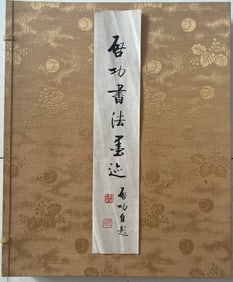 启功书法墨迹
启功自题